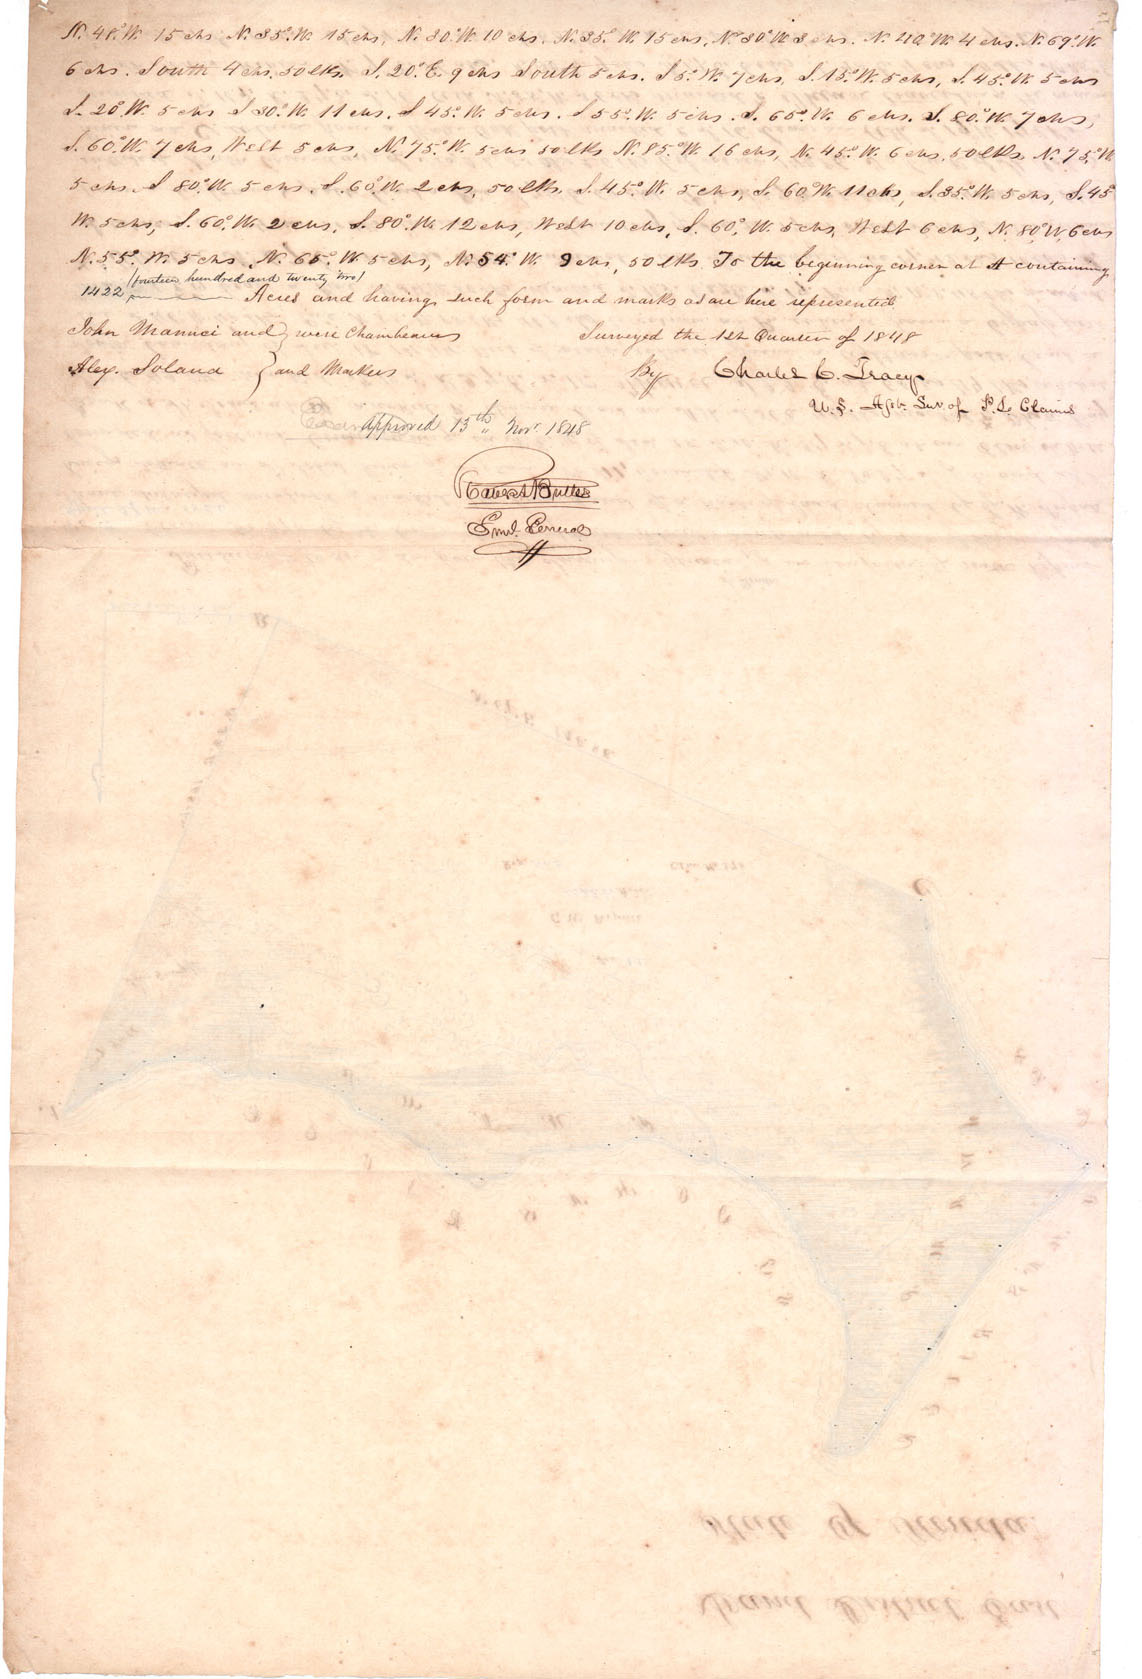 N. 48°. W. 15 chs N. 35°. W. 15 chs, N. 30°. W. 10 chs. N. 35°. W. 15 chs, N. 30°. W. 3 chs. N. 40°. W. 4 chs. N. 69°. W.
6 chs. South 4 chs. 50 lks. S. 20°. E. 9 chs South 5 chs. S 5°. W. 7 chs, S. 15°. W. 5 chs, S. 45°. W. 5 chs
S. 20°. W. 5 chs S 30°. W. 11 chs. S 45°. W. 5 chs. S 55°. W. 5 chs. S. 65°. W. 6 chs. S. 80°. W. 7 chs,
S. 60°. W. 7 chs, West 5 chs, N. 75°. W. 5 chs 50 lks N. 85°. W. 16 chs, N. 45°. W. 6 chs, 50 lks N. 75°. W
5 chs. S 80°. W. 5 chs. S. 60°. W. 2 chs, 50 lks. S. 45°. W. 5 chs, S. 60°. W. 11 chs, S. 35°. W. 5 chs, S. 45°
W. 5 chs, S. 60°. W. 2 chs, S. 80°. W. 12 chs, West 10 chs, S. 60°. W. 5 chs, West 6 chs, N. 80° W. 6 chs
N. 55°. W. 5 chs, N. 65°. W 5 chs, N. 54°. W. 9 chs, 50 lks. To the beginning corner at A containing
(fourteen hundred and twenty two)
1422 Acres and having such form and marks as are here represented
John Manuci and } were Chainbearers Surveyed the 1st Quarter of 1848
Alex. Solana } and Markers By Charles C. Tracy
U. S. Sur. of P. L. Claims
Approved 13th Novr. 1848
Robert Butler
Surv. General